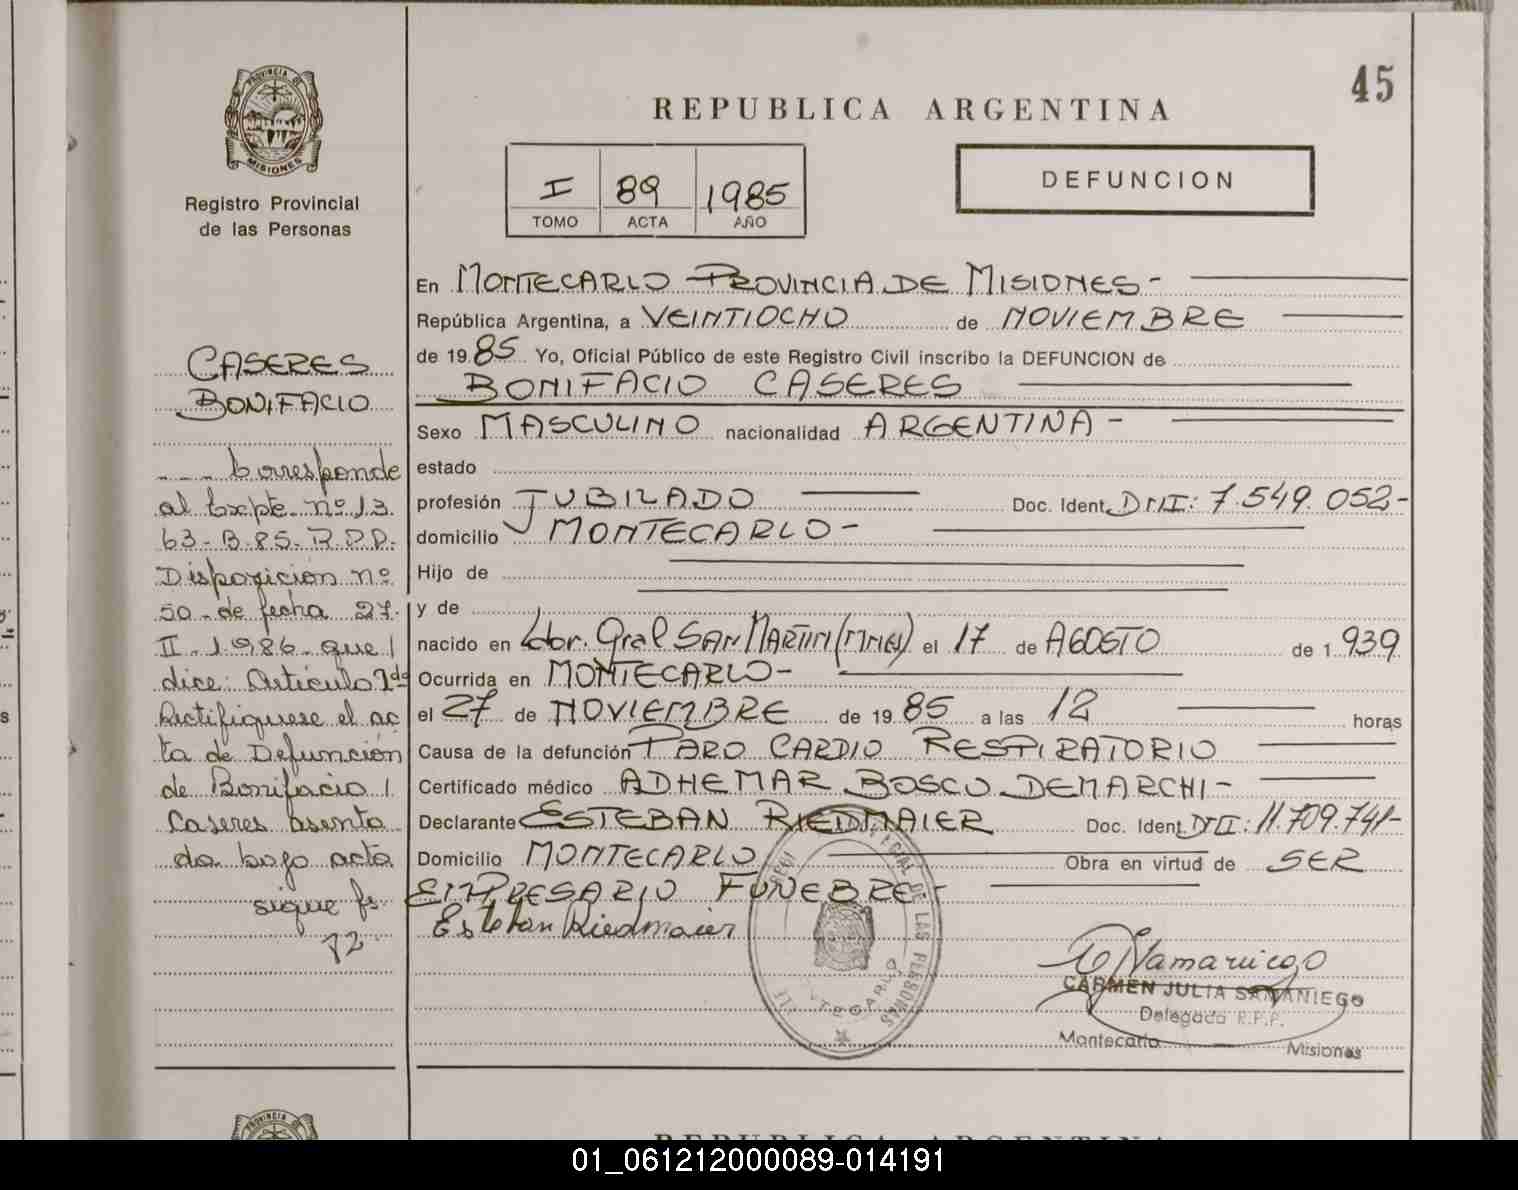 45
REPUBLICA ARGENTINA
PROVINCIA DE
MISIONES
Registro Provincial
de las Personas
I 89 1985
TOMO ACTA AÑO
DEFUNCION
CASERES
BONIFACIO
- - - Corresponde
al Expte. nº 13
63-B-85-R.P.P.
Disposición nº
50-de fecha 27-
II-1986-que
dice: Artículo 1do
Rectifíquese el ac
ta de Defunción
de Bonifacio
Caseres asenta
da bajo acta
sigue fs
72
En MONTECARLO PROVINCIA DE MISIONES-
República Argentina, a VEINTIOCHO de NOVIEMBRE
de 1985 Yo, Oficial Público de este Registro Civil inscribo la DEFUNCION de
BONIFACIO CASERES
Sexo MASCULINO nacionalidad ARGENTINA-
estado
profesión JUBILADO Doc. Ident. DNI: 7.549.052-
domicilio MONTECARLO-
Hijo de
y de
nacido en Ldor. Gral SAN MARTIN (MNES) el 17 de AGOSTO de 1939
Ocurrida en MONTECARLO-
el 27 de NOVIEMBRE de 1985 a las 12 horas
Causa de la defunción PARO CARDIO RESPIRATORIO
Certificado médico ADHEMAR BOSCO DEMARCHI-
Declarante ESTEBAN RIEDMAIER Doc. Ident. DNI: 11.709.741-
Domicilio MONTECARLO Obra en virtud de SER
EMPRESARIO FUNEBRE-
Esteban Riedmaier
DE LAS PERSONAS
CARMEN JULIA SAMANIEGO
Delegada R.P.P.
Montecarlo Misiones
REPUBLICA ARGENTINA
01_061212000089-014191